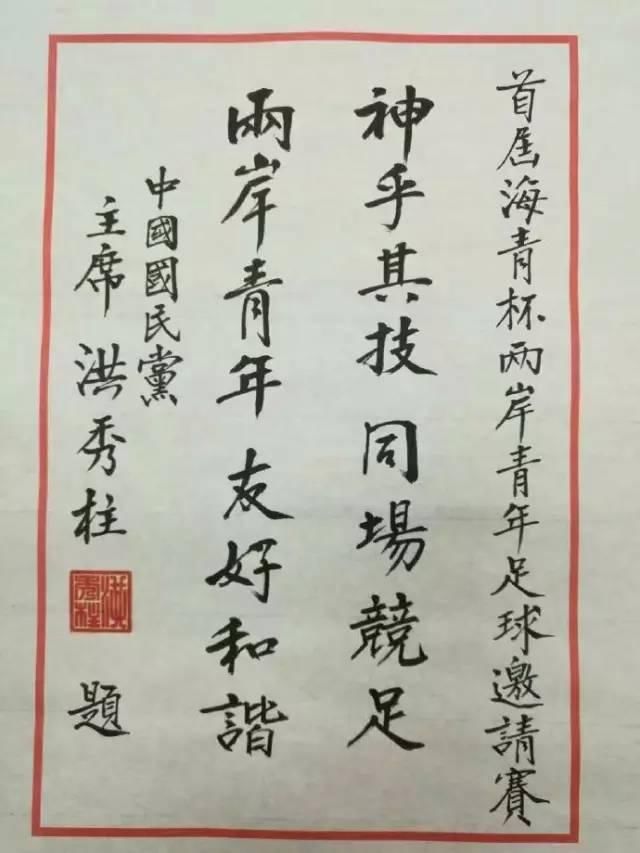 首届海青杯两岸青年足球邀請賽
神乎其技 同場競足
兩岸青年友好和諧
中國國民黨
主席 洪秀柱 題
洪秀柱